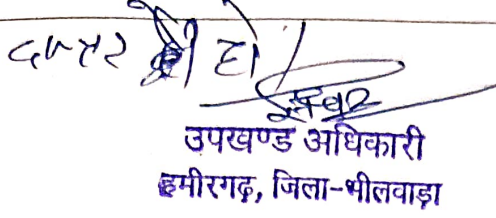 दफ्तर हो।
उपखण्ड अधिकारी
हमीरगढ़, जिला-भीलवाड़ा